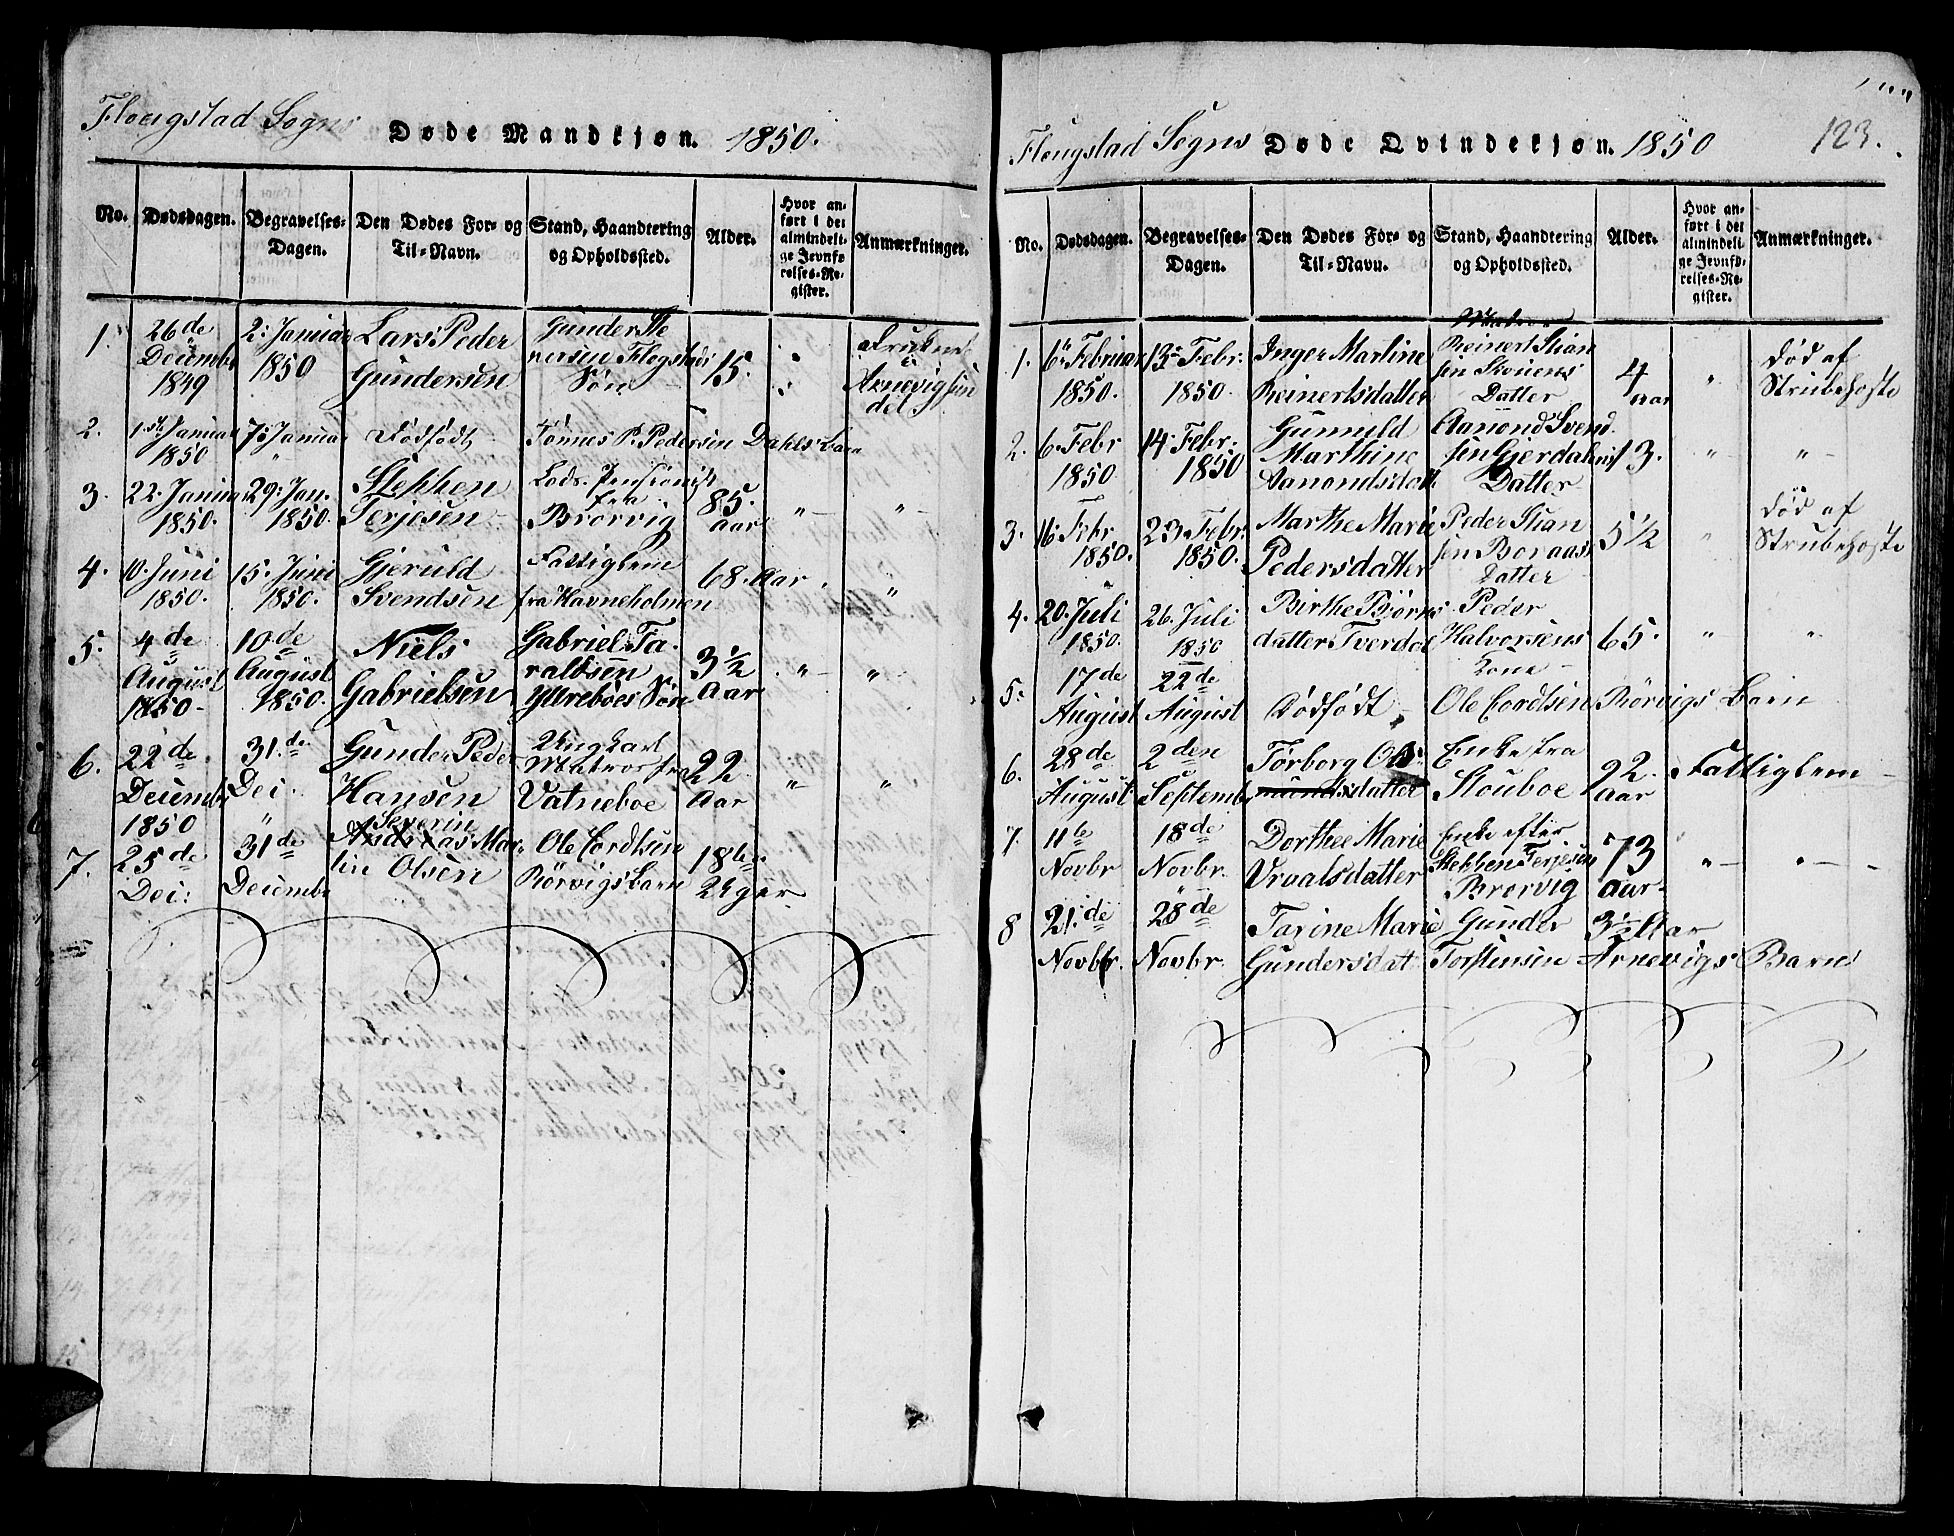 Flougstad Sogns Døde Mandkjøn. 1850.
No. Dødsdagen. Begravelses-Dagen. Den Dødes For- og Til-Navn. Stand, Haandtering og Opholdssted. Alder. Hvor anført i det almindelige Jevnførelses-Register. Anmærkninger.
1. 26de Decembr 1849 2: Januar 1850 Lars Peder Gundersen Gunder Stenersen Flogstads Søn 15. " Druknet i Arnevigsundet
2. 1ste Januar 1850 7: Januar Dødfødt Tønnes P. Pedersen Dahls Barn
3. 22. Januar 1850. 29: Jan. 1850. Stephen Terjesen Lods. Pensionist fra Brørvig 85. Aar " "
4. 10. Juni 1850. 15. Juni 1850. Gjeruld Svendsen Fattiglem fra Havneholmen 68. Aar. "
5. 4de August 1850 10de August 1850. Niels Gabrielsen Gabriel Taraldsen Yttreboes Søn 3½ Aar " "
6. 22de Decembr 1850 31.de Dec. " Gunder Peder Hansen Ungkarl Matros fra Vatneboe 22 Aar " "
7. 25de Dec: 31de Decembr Severin Andreas Martin Olsen Ole Cordtsen Rörvigs Barn 18 Uger
Flougstad Sogns Døde Qvindekjøn. 1850 123.
No. Dødsdagen. Begravelses-Dagen. Den Dødes For- og Til-Navn. Stand, Haandtering og Opholdssted. Alder. Hvor anført i det almindelige Jevnførelses-Register. Anmærkninger.
1. 6 Februar 1850. 13 Febr. 1850. Inger Martine Reinertsdatter Matros Reinert Stiansen Skouens Datter 4 Aar " Död af Strubehoste
2. 6. Febr 1850. 14. Febr. 1850 Gunnild Marthine Aamondsdatt Aamond Svendsen Gjerdalens Datter 13. " "
3. 16. Febr 1850. 23 Febr. 1850. Marthe Marie Pedersdatter Peder Stiansen Boraas Datter 5½ " Död af Strubehoste
4. 20. Juli 1850. 26. Juli 1850 Birthe Björnsdatter Tverdal Peder Halvorsens Kone 65. " "
5. 17de August 22de August Dödfödt Ole Cordtsen Rörvigs Barn
6. 28de August 2den Septembr Törborg Ols mundsdatter Enke fra Stouboe 92. Aar Fattiglem
7. 11te Novbr 18de Novbr. Dorthee Marie Vraalsdatter Enke efter Stephen Terjesen Brörvig 73 Aar " "
8 21.de Novbr. 28de Novbr. Tarine Marie Gundersdat Gunder Torstensen Arnevigs Barn 3½ Aar